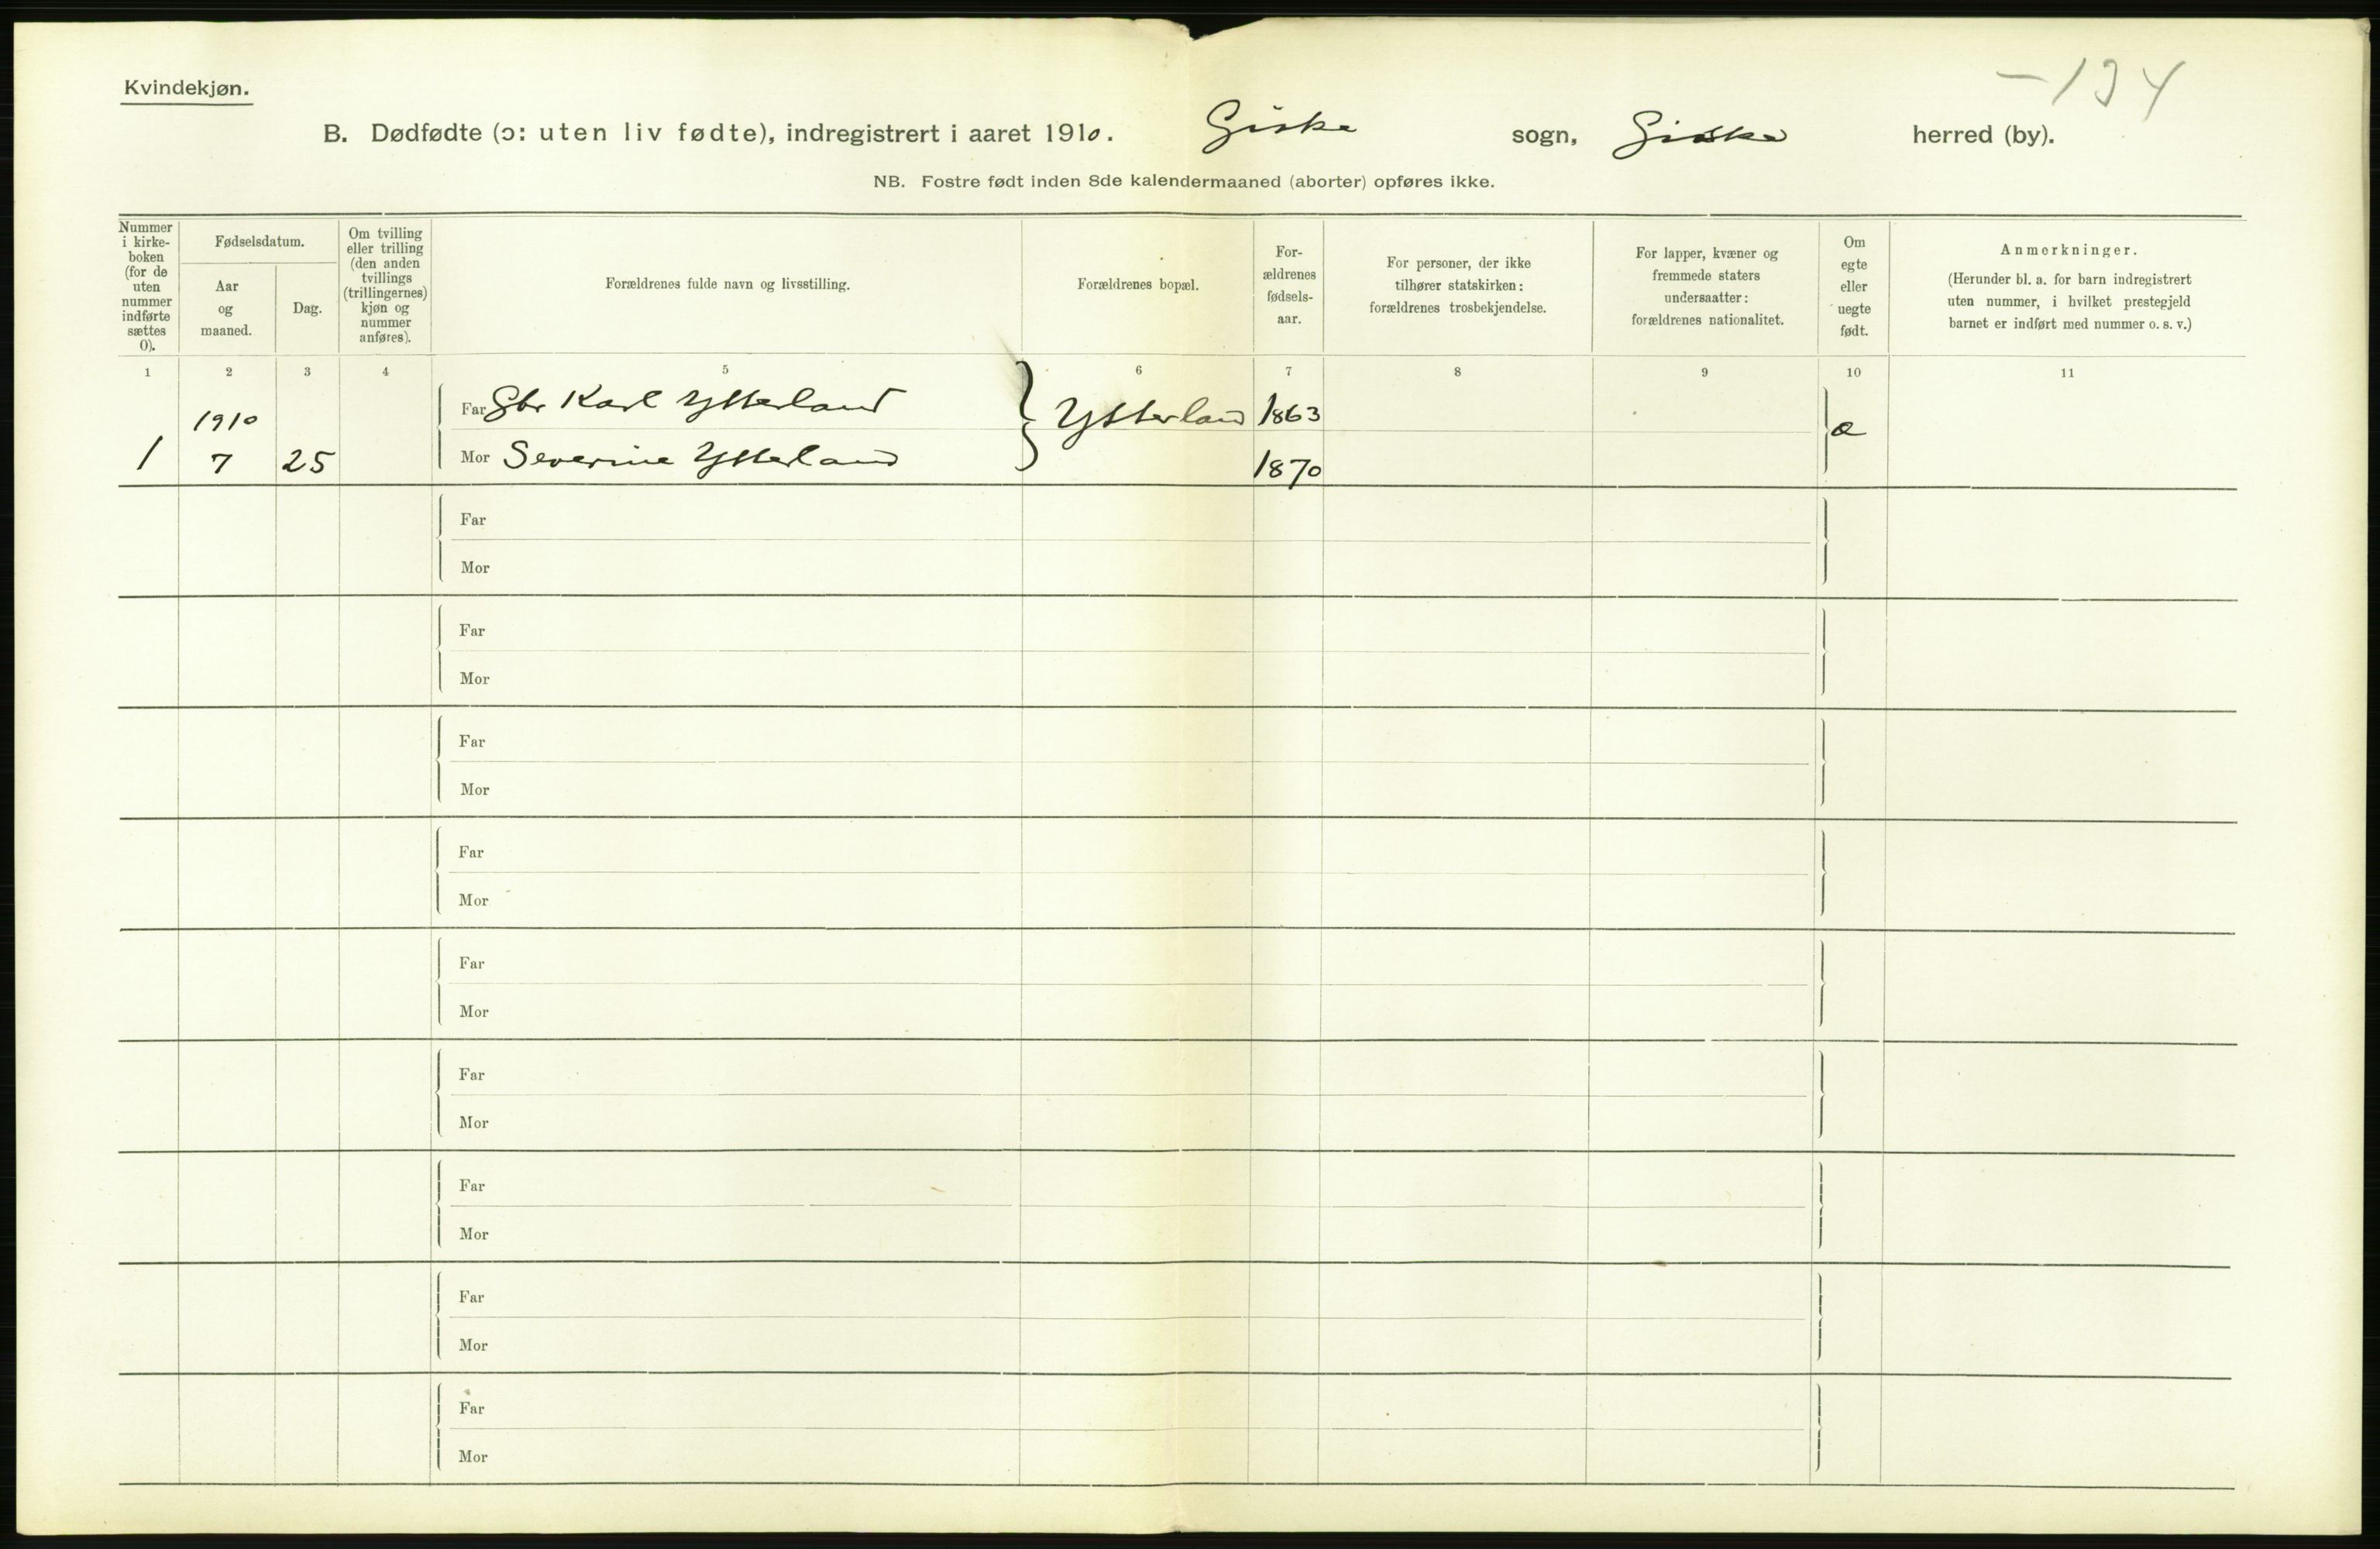 Kvindekjøn.
-134
B. Dødfødte (ɔ: uten liv fødte), indregistrert i aaret 1910. Giske sogn, Giske herred (by).
NB. Fostre født inden 8de kalendermaaned (aborter) opføres ikke.
Nummer i kirke- boken (for de uten nummer indførte sættes 0).
Fødselsdatum.
Aar og maaned.
Dag.
Om tvilling eller trilling (den anden tvillings (trillingernes) kjøn og nummer anføres).
Forældrenes fulde navn og livsstilling.
Forældrenes bopæl.
For- ældrenes fødsels- aar.
For personer, der ikke tilhører statskirken: forældrenes trosbekjendelse.
For lapper, kvæner og fremmede staters undersaatter: forældrenes nationalitet.
Om egte eller uegte født.
Anmerkninger.
(Herunder bl. a. for barn indregistrert uten nummer, i hvilket prestegjeld barnet er indført med nummer o. s. v.)
1 2 3 4 5 6 7 8 9 10 11
1910 Far Gbr Karl Ytterland Ytterland 1863 æ
1 7 25 Mor Severine Ytterland 1870
Far
Mor
Far
Mor
Far
Mor
Far
Mor
Far
Mor
Far
Mor
Far
Mor
Far
Mor
Far
Mor